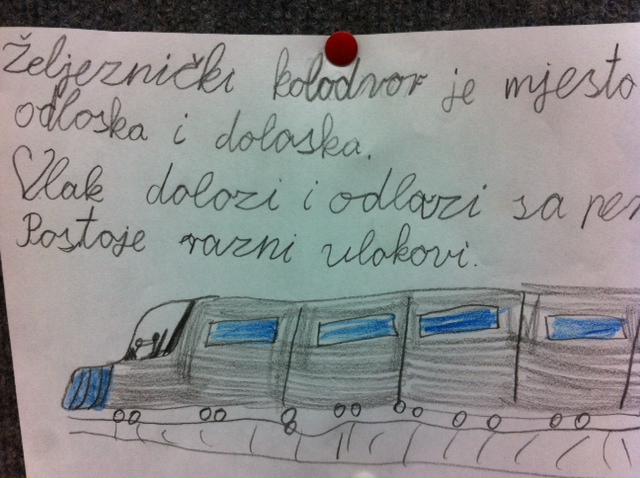 Željeznički kolodvor je mjesto
odlaska i dolaska.
Vlak dolazi i odlazi sa
Postoje razni vlakovi.